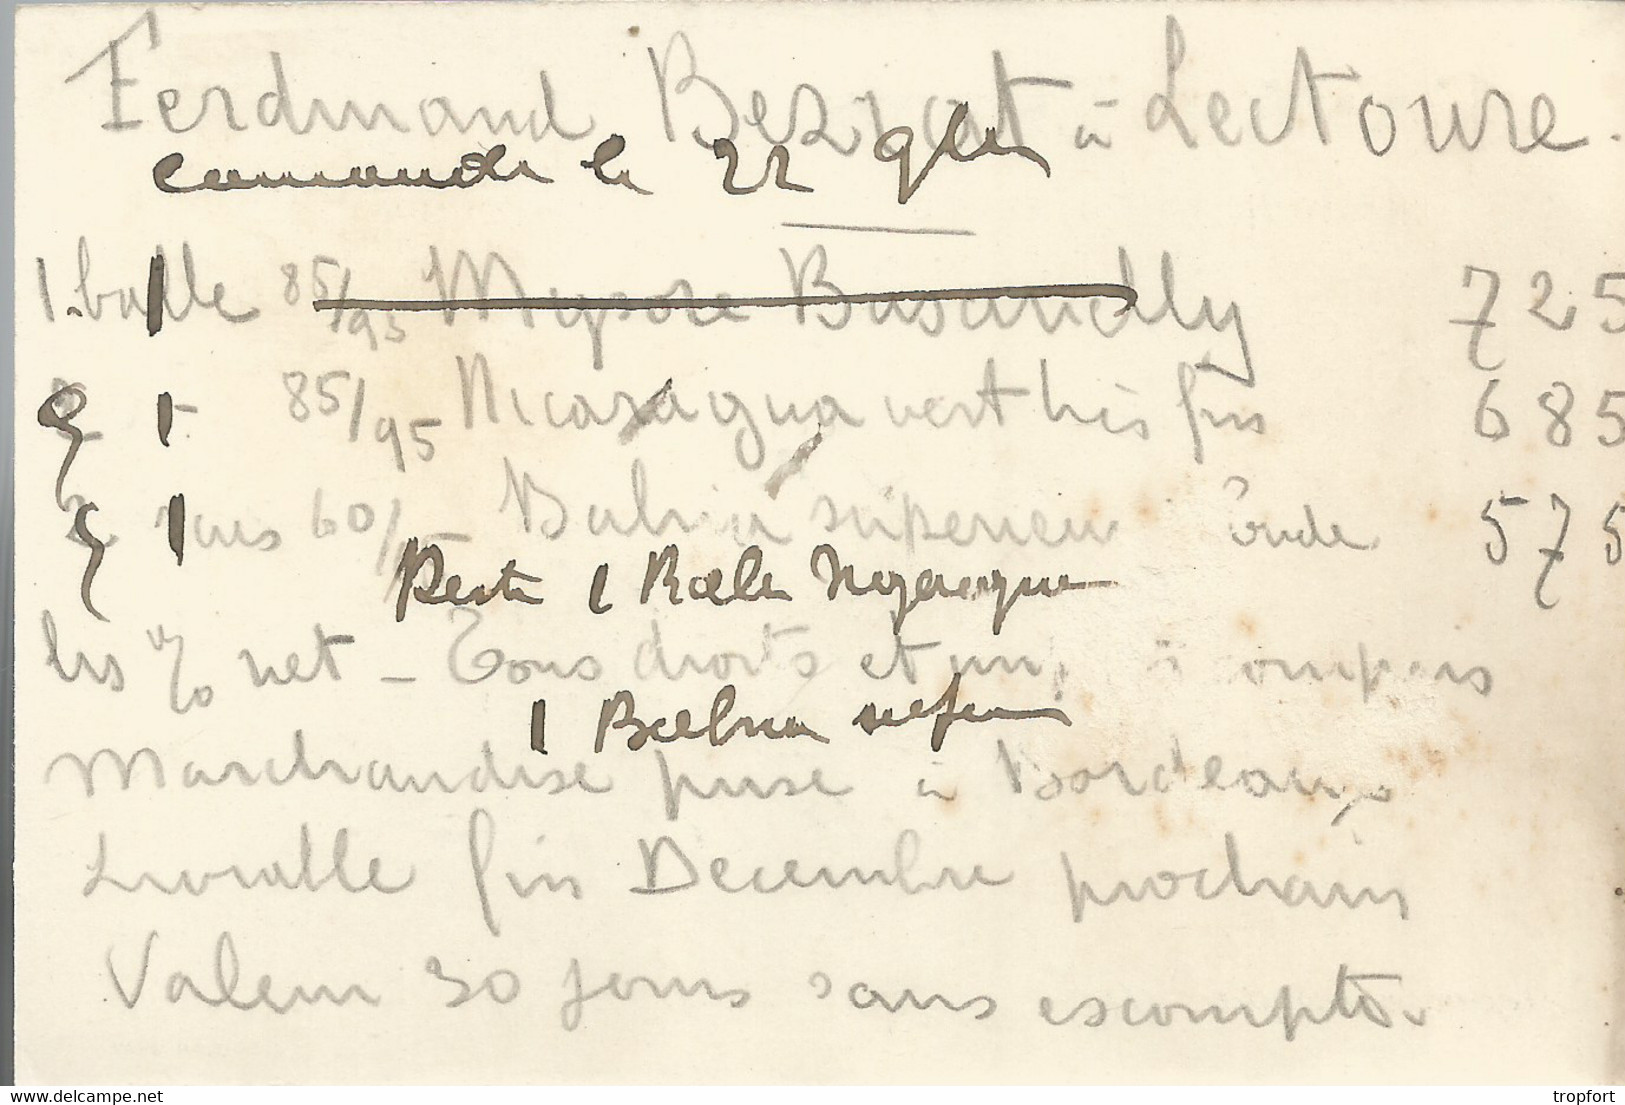 Ferdinand Beziat à Lectoure.
Comande le 22
1. balle 85/95 Mysore Basandlly 725
2 1 85/95 Nicaragua vert très fin 685
2 sacs 60/ Bahia superieur 575
Reste 1 Balle
les % net - Tous droits et à compris
1 Bahia
Marchandise prise à Bordeaux
Livrable fin Decembre prochain
Valeur 30 jours sans escompte.
delcampe.net
tropfort